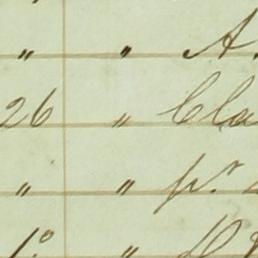 " " A.
26 " Cla
" " pr
1º "